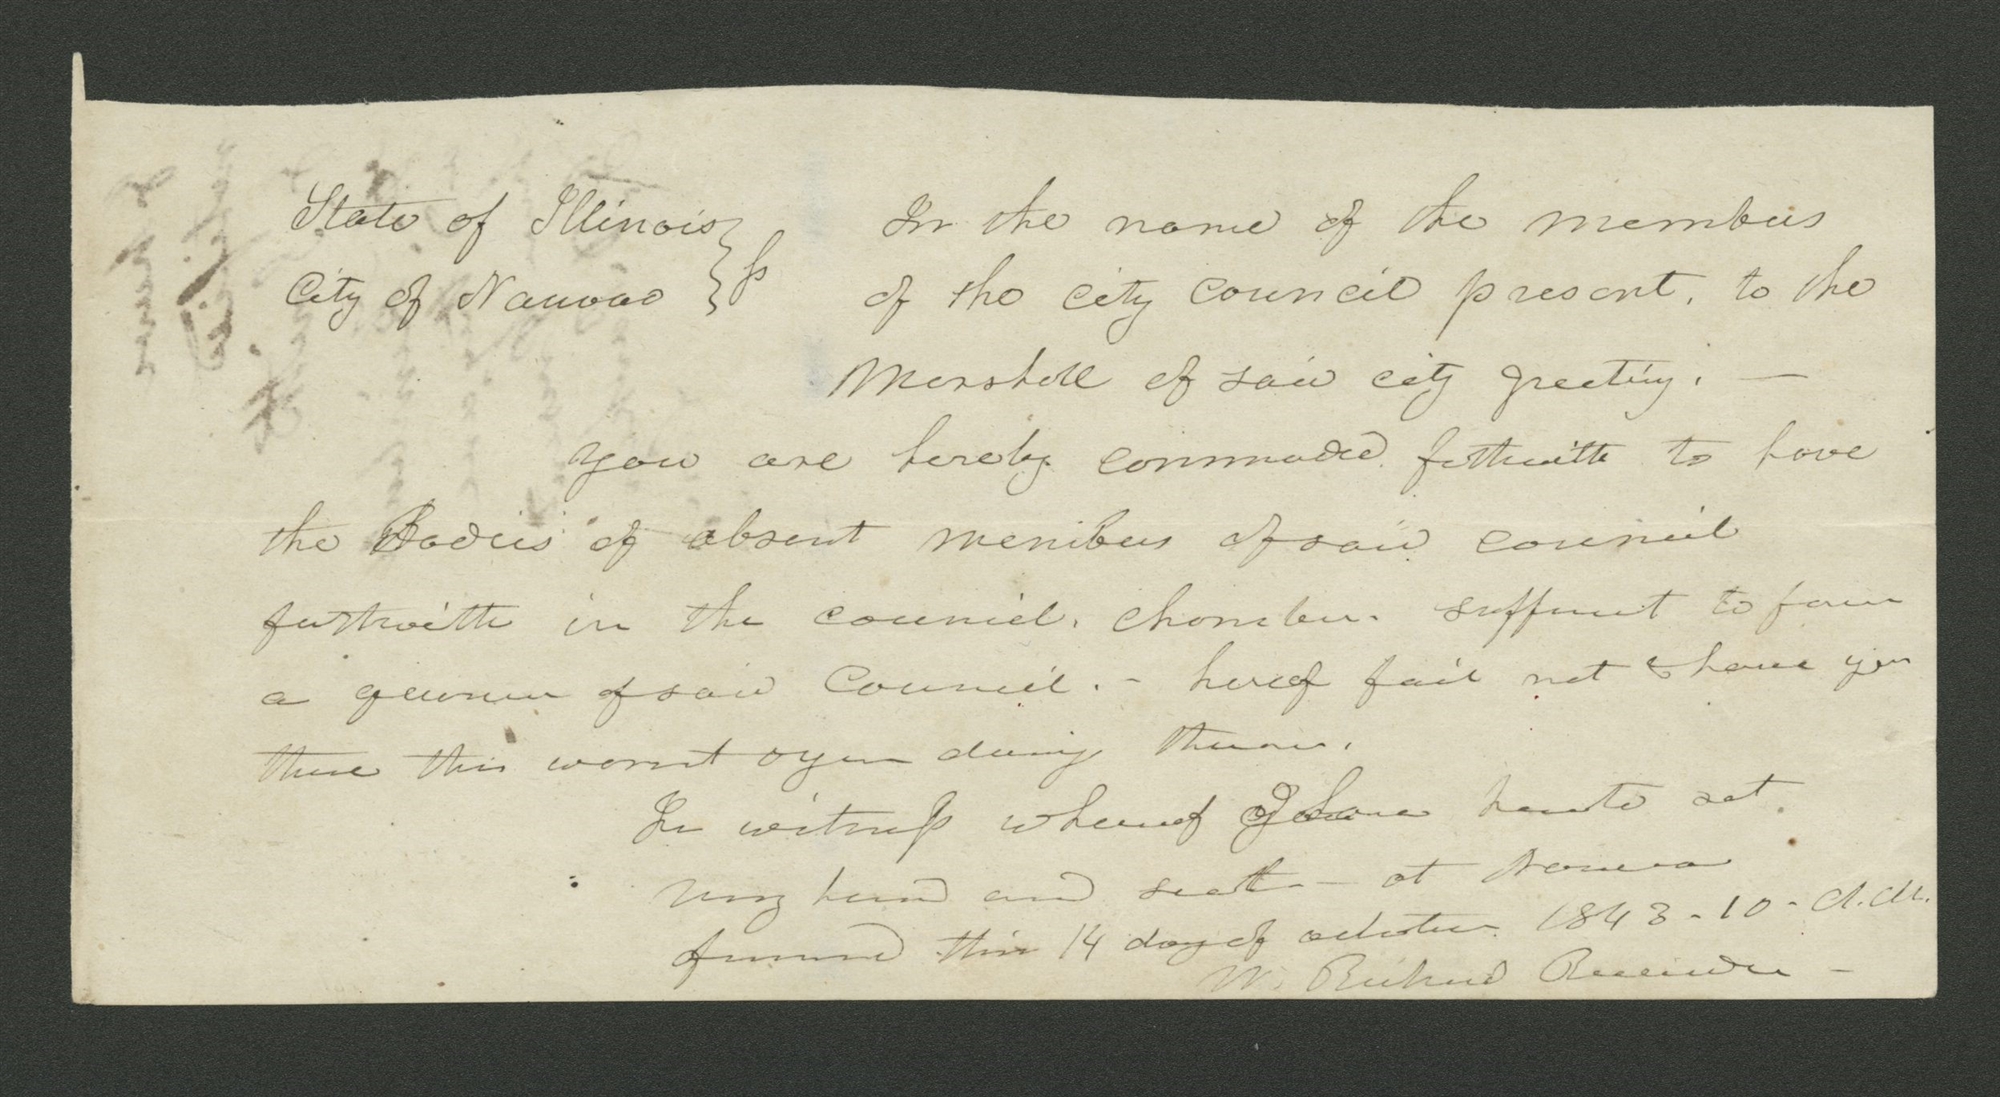 State of Illinois } ss In the name of the members
City of Nauvoo } of the city council present, to the
Marshall of said city greeting. —
You are hereby commaded forthwith to have
the Bodies of absent members of said council
forthwith in the council. chamber. sufficient to form
a quorum of said Council. – hereof fail not & have you
there this warrant & your doing thereon.
In witness whereof I have hereunto set
my hand and seal – at Nauvoo
aforesaid this 14 day of october 1843 - 10 - A.M.
W. Richards Recorder –